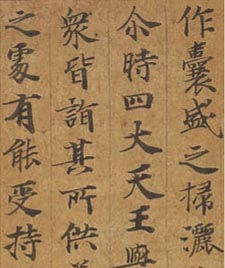 作囊盛之掃灑
尒時四大天王與
衆皆詣其所供
之處有能受持